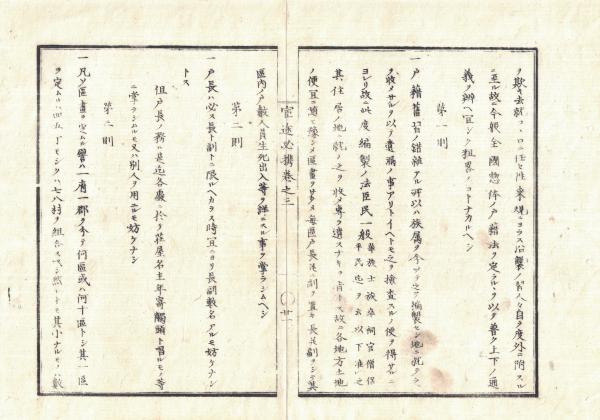 ヲ欺キ去就心ニ任セ往来規ニヨラス沿襲ノ習人々自ラ度外ニ附スル
ニ至ル故ニ今般全國惣体ノ戸籍法ヲ定ラルヽヲ以テ普ク上下ノ通
義ヲ辨ヘ宜シク粗畧ノコトナカルヘシ
第一則
一戸籍舊習ノ錯雑アル所以ハ族属ヲ分ツテ之ヲ編製セシ地ニ就テ之
ヲ收メサルヲ以テ遺漏ノ事アリトイヘトモ之ヲ検査スルノ便ヲ得サルニ
ヨレリ故ニ此度編製ノ法臣民一般
華族士族卒祠官僧侶
平民迠ヲ云以下准之
其住居ノ地ニ就テ之ヲ收メ専ラ遺スナキヲ旨トス故ニ各地方土地
ノ便宜ニ随ヒ豫シメ區画ヲ定メ毎區戸長並ニ副ヲ置キ長並副ヲシテ其
宦途必携巻之三
〇廿一
區内ノ戸數人員生死出入等ヲ詳ニスル事ヲ掌ラシムヘシ
第二則
一戸長ハ必ス長ト副トニ限ルヘカラス時宜ニヨリ長副數名アルモ妨ケナシ
トス
但戸長ノ務ハ是迠各處ニ於テ荘屋名主年寄觸頭ト唱ルモノ等
ニ掌ラシムルモ又ハ別人ヲ用ユルモ妨ケナシ
第三則
一凡ソ區画ヲ定ムル譬ハ一府一郡ヲ分テ何區或ハ何十區トシ其一區
ヲ定ムルハ四五丁モシクハ七八村ヲ組合スヘシ然レトモ其小ナルモノハ數